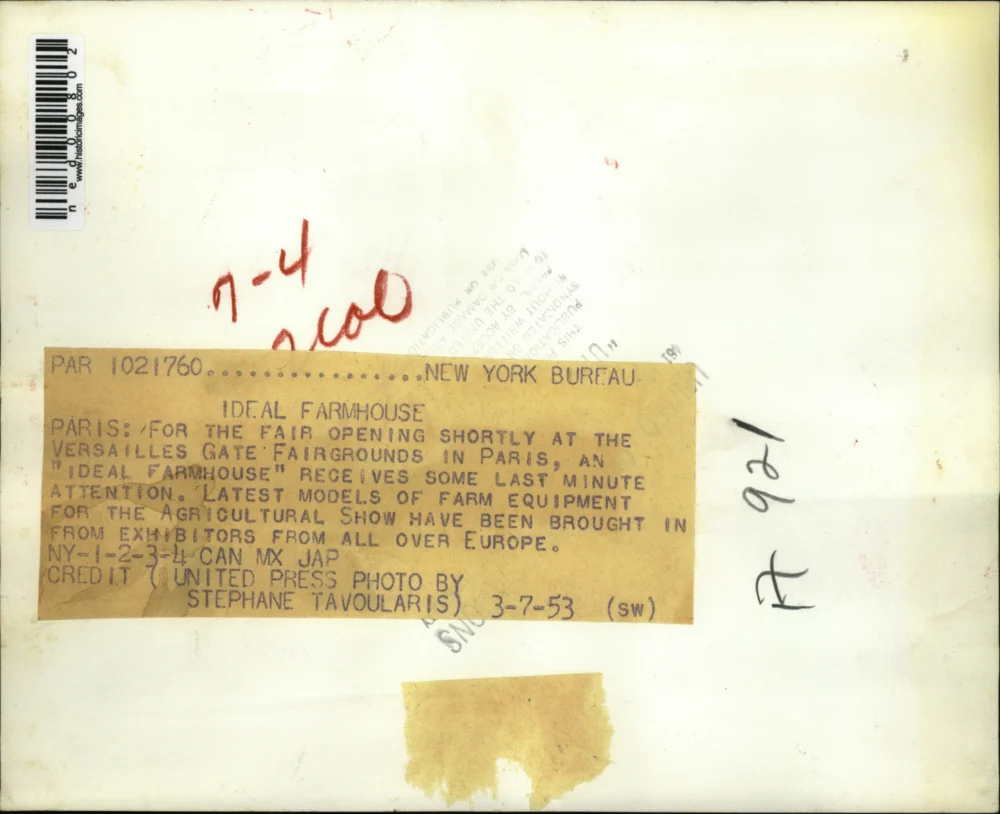 ned00802
www.historicimages.com
7-4
2col
PAR 1021760................NEW YORK BUREAU
IDEAL FARMHOUSE
PARIS: FOR THE FAIR OPENING SHORTLY AT THE
VERSAILLES GATE FAIRGROUNDS IN PARIS, AN
"IDEAL FARMHOUSE" RECEIVES SOME LAST MINUTE
ATTENTION. LATEST MODELS OF FARM EQUIPMENT
FOR THE AGRICULTURAL SHOW HAVE BEEN BROUGHT IN
FROM EXHIBITORS FROM ALL OVER EUROPE.
NY-1-2-3-4 CAN MX JAP
CREDIT (UNITED PRESS PHOTO BY
STEPHANE TAVOULARIS) 3-7-53 (SW)
A 921